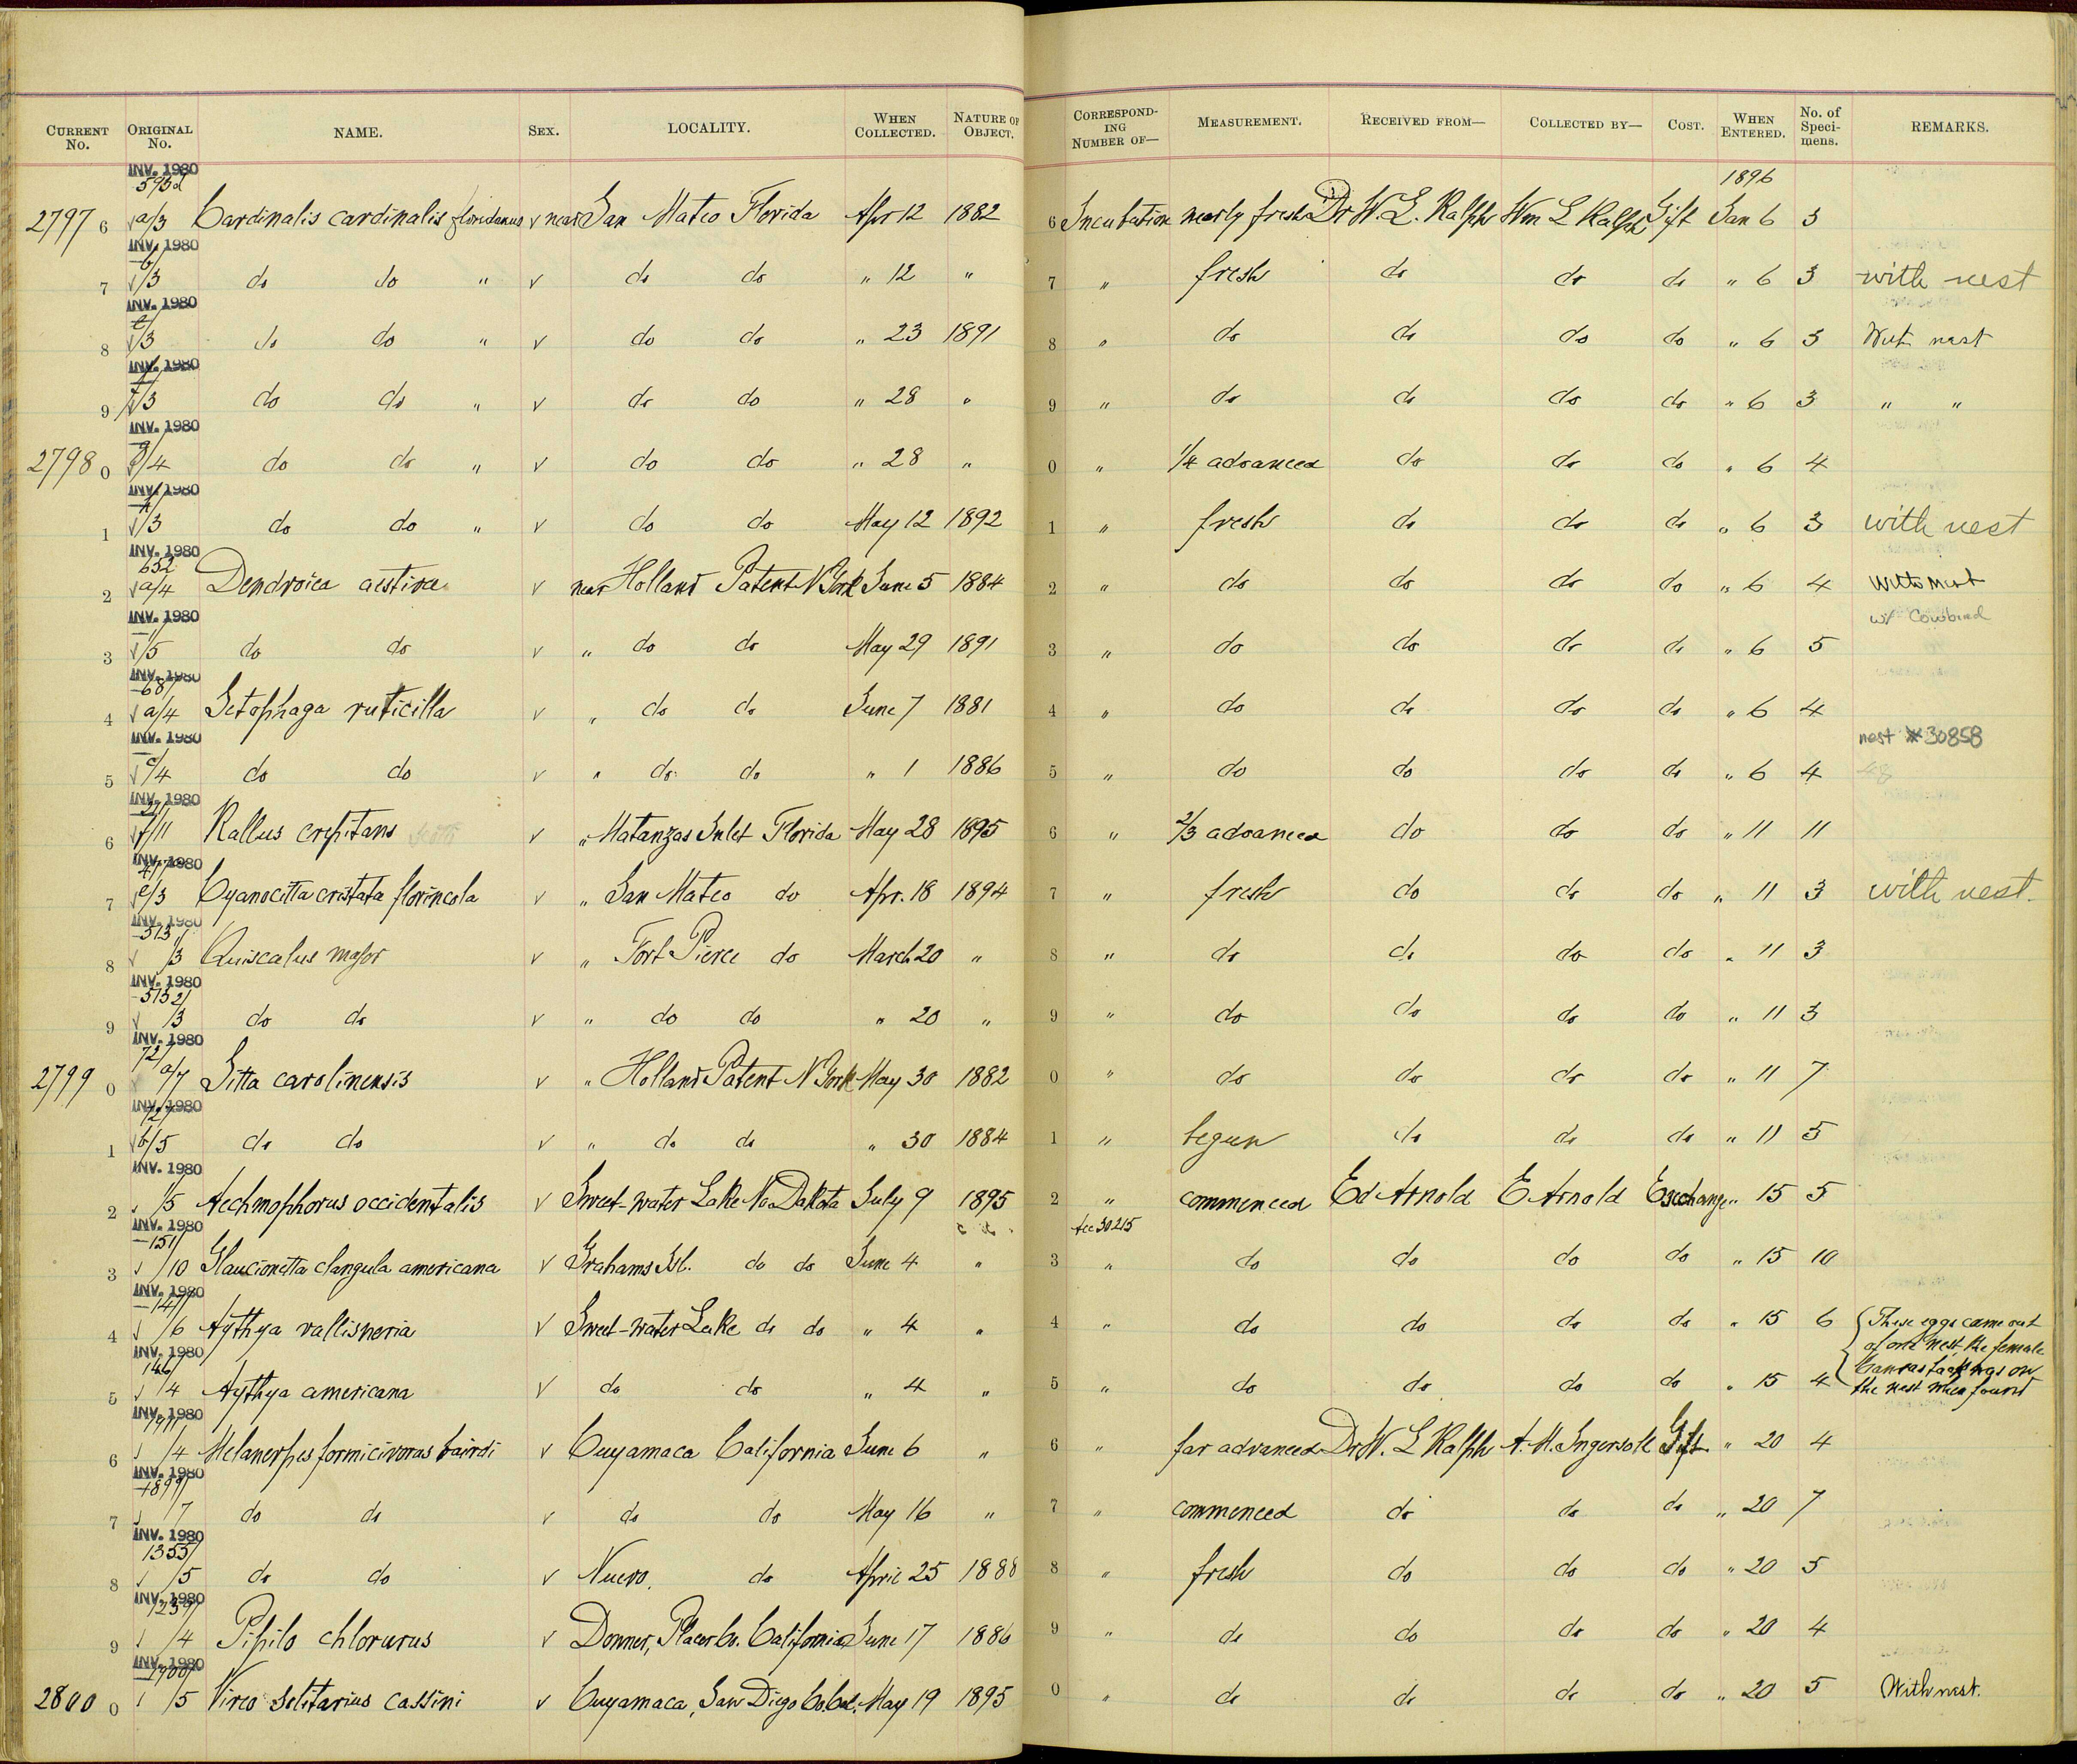 CURRENT No. ORIGINAL No. NAME. SEX. LOCALITY. WHEN COLLECTED. NATURE OF OBJECT. CORRESPONDING NUMBER OF— MEASUREMENT. RECEIVED FROM— COLLECTED BY— COST. WHEN ENTERED. No. of Specimens. REMARKS.
INV. 1980
593d 1896
2797 6 √ a/3 Cardinalis cardinalis floridanus √ near San Mateo Florida Apr 12 1882 6 Incubation nearly fresh Dr W. L. Ralph Wm L Ralph Gift Jan 6 3
INV. 1980
7 √ b/3 do do " √ do do " 12 " 7 " fresh do do do " 6 3 with nest
INV. 1980
8 √ e/3 do do " √ do do " 23 1891 8 " do do do do " 6 3 With nest
INV. 1980
9 √ f/3 do do " √ do do " 28 " 9 " do do do do " 6 3 " "
INV. 1980
2798 0 g/4 do do " √ do do " 28 " 0 " 1/4 advanced do do do " 6 4
INV. 1980
1 √ /3 do do " √ do do May 12 1892 1 " fresh do do do " 6 3 with nest
INV. 1980
652
2 √ a/4 Dendroica aestiva √ near Holland Patent N York June 5 1884 2 " do do do do " 6 4 With Nest
INV. 1980 w/ Cowbird
3 √ /5 do do √ " do do May 29 1891 3 " do do do do " 6 5
INV. 1980
687
4 √ a/4 Setophaga ruticilla √ " do do June 7 1881 4 " do do do do " 6 4
INV. 1980 nest # 30858
5 √ c/4 do do √ " do do " 1 1886 5 " do do do do " 6 4
INV. 1980
211
6 √ f/11 Rallus crepitans √ " Matanzas Inlet Florida May 28 1895 6 " 2/3 advanced do do do " 11 11
INV. 1980
7 √ e/3 Cyanocitta cristata florincola √ " San Mateo do Apr. 18 1894 7 " fresh do do do " 11 3 with nest.
INV. 1980
513
8 √ /3 Quiscalus major √ " Fort Pierce do March 20 " 8 " do do do do " 11 3
INV. 1980
513 2/
9 √ /3 do do √ " do do " 20 " 9 " do do do do " 11 3
INV. 1980
727 a/7
2799 0 /7 Sitta carolinensis √ " Holland Patent N York May 30 1882 0 " do do do do " 11 7
INV. 1980
727
1 √ b/5 do do √ " do do " 30 1884 1 " begun do do do " 11 5
INV. 1980
2 √ 1/5 Aechmophorus occidentalis √ Sweet-water Lake No Dakota July 9 1895 2 " commenced Ed Arnold E Arnold Exchange " 15 5
INV. 1980 Acc 30215
151/
3 √ /10 Glaucionetta clangula americana √ Grahams Isl. do do June 4 " 3 " do do do do " 15 10
INV. 1980
147/
4 √ /6 Aythya vallisneria √ Sweet-water Lake do do " 4 " 4 " do do do do " 15 6 { These eggs came out
of one nest, the female
INV. 1980 Canvas back was on
146/
5 √ /4 Aythya americana √ do do " 4 " 5 " do do do do " 15 4 the nest when found
INV. 1980
1911/
6 √ /4 Melanerpes formicivorus bairdi √ Cuyamaca California June 6 " 6 " far advanced Dr W. L Ralph A. M. Ingersoll Gift " 20 4
INV. 1980
1899/
7 √ /7 do do √ do do May 16 " 7 " commenced do do do " 20 7
INV. 1980
1355/
8 √ /5 do do √ Nuevo, do April 25 1888 8 " fresh do do do " 20 5
INV. 1980
1239/
9 √ /4 Pipilo chlorurus √ Donner, Placer Co. California June 17 1886 9 " do do do do " 20 4
INV. 1980
1900/
2800 0 √ /5 Vireo solitarius cassini √ Cuyamaca, San Diego Co. Cal. May 19 1895 0 " do do do do " 20 5 With nest.